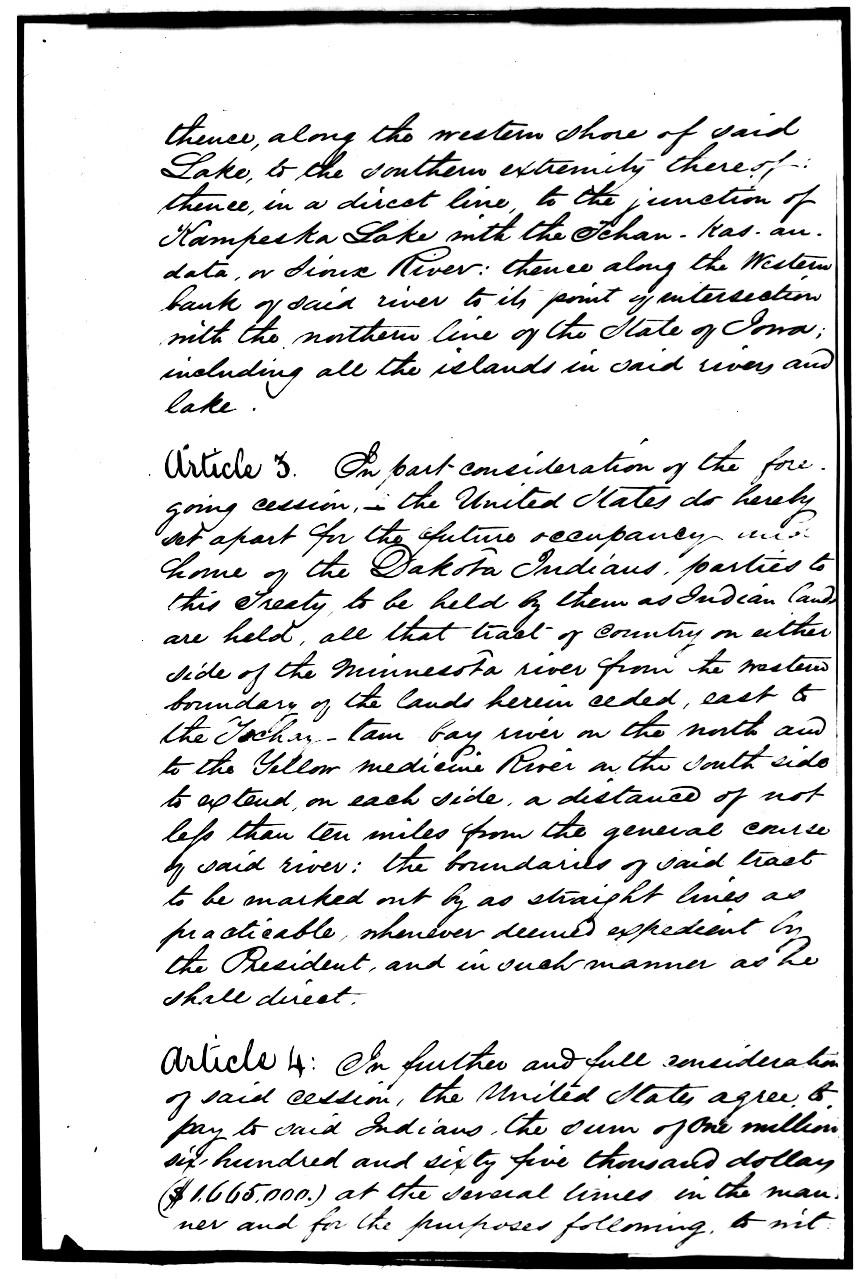 thence, along the western shore of said
Lake, to the southern extremity thereof:
thence, in a direct line, to the junction of
Kampeska Lake with the Tchan-kas-an-
data, or Sioux River: thence along the Western
bank of said river to its point of intersection
with the northern line of the State of Iowa;
including all the islands in said rivers and
lake.
Article 3. In part consideration of the fore-
going cession, - the United States do hereby
set apart for the future occupancy and
home of the Dakota Indians, parties to
this Treaty, to be held by them as Indian lands
are held, all that tract of country on either
side of the Minnesota river from the western
boundary of the lands herein ceded, east to
the Tchay-tam bay river on the north and
to the Yellow medicine River on the south side
to extend, on each side, a distance of not
less than ten miles from the general course
of said river: the boundaries of said tract
to be marked out by as straight lines as
practicable, whenever deemed expedient by
the President, and in such manner as he
shall direct.
Article 4: In further and full consideration
of said cession, the United States agree to
pay to said Indians, the sum of One million
six hundred and sixty five thousand dollars
($1.665,000.) at the several times in the man-
ner and for the purposes following, to wit: